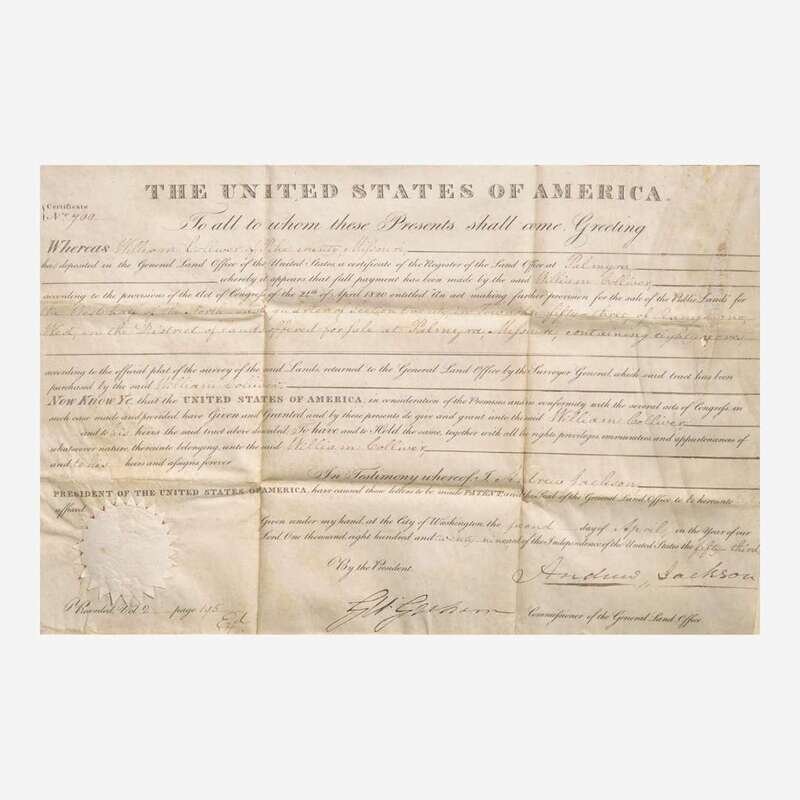 THE UNITED STATES OF AMERICA.
Certificate
No. 700
To all to whom these Presents shall come, Greeting
Whereas William Colliver of Pike county Missouri
has deposited in the General Land Office of the United States, a certificate of the Register of the Land Office at Palmyra
whereby it appears that full payment has been made by the said William Colliver
according to the provisions of the Act of Congress of the 24th of April 1820 entitled "An act making further provision for the sale of the Public Lands" for
the West half of the North East quarter of Section in Township fifty three of Range one
West, in the District of Lands offered for sale at Palmyra, Missouri, containing eighty acres
according to the official plat of the survey of the said Lands, returned to the General Land Office by the Surveyor General, which said tract has been
purchased by the said William Colliver
Now Know Ye, that the UNITED STATES OF AMERICA, in consideration of the Premises and in conformity with the several acts of Congress, in
such case made and provided have Given and Granted and by these presents do give and grant unto the said William Colliver
and to his heirs the said tract above described To have and to Hold the same, together with all the rights privileges immunities and appurtenances of
whatsoever nature thereunto belonging, unto the said William Colliver
and to his heirs and assigns forever
In Testimony whereof I, Andrew Jackson
PRESIDENT OF THE UNITED STATES OF AMERICA, have caused these letters to be made PATENT, and the Seal of the General Land Office to be hereunto
affixed
Given under my hand, at the City of Washington, the second day of April in the Year of our
Lord, One thousand, eight hundred and twenty nine and of the Independence of the United States the fifty third
By the President. Andrew Jackson
G W Graham Commissioner of the General Land Office.
Recorded Vol 2 page 185